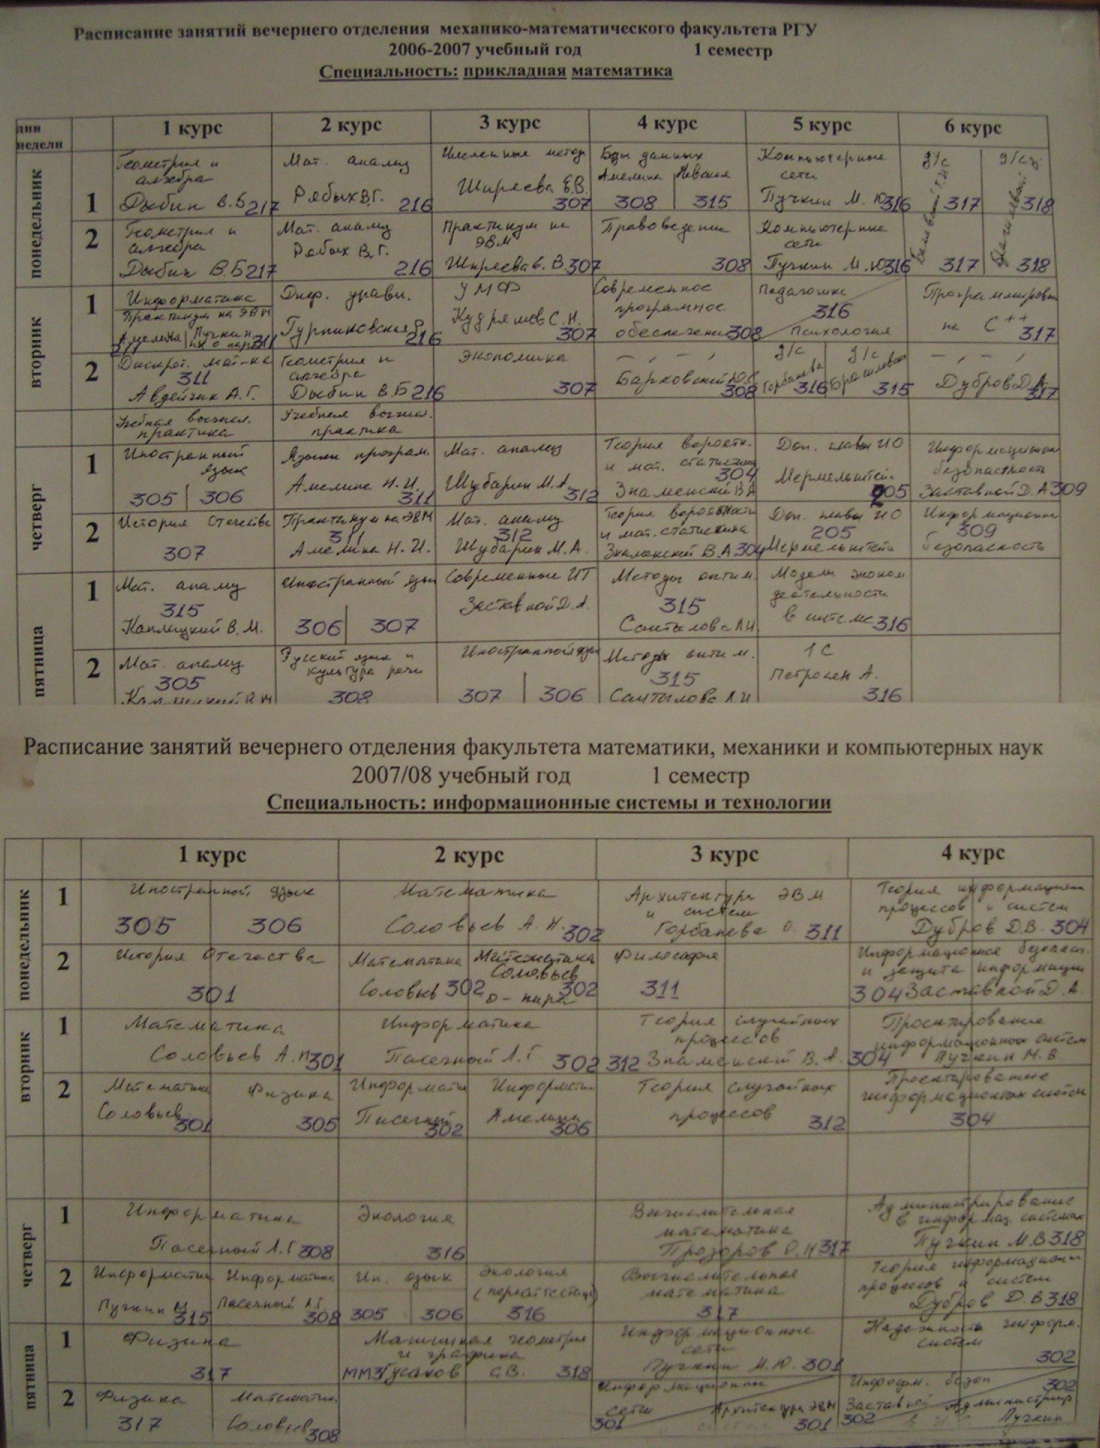 Расписание занятий вечернего отделения механико-математического факультета РГУ
2006-2007 учебный год 1 семестр
Специальность: прикладная математика
дни недели 1 курс 2 курс 3 курс 4 курс 5 курс 6 курс
понедельник
1
Геометрия и алгебра
Дыбин В.Б 217
Мат. анализ
Рябых В.Г. 216
Численные метод
Ширяева Е.В. 307
Базы данных
Амелина 308 315
Компьютерные сети
Пучкин М. Ю 316
д/с 317
318
2
Геометрия и алгебра
Дыбин В.Б 217
Мат. анализ
Рябых В.Г. 216
Практикум на ЭВМ
Ширяева Е.В. 307
Правоведение
308
Компьютерные сети
Пучкин М.Ю 316
317
318
вторник
1
Информатика
Практикум на ЭВМ
Амелина Пучкин 311
Диф. уравн.
216
УМФ
Кудряшов С.Н. 307
Современное програмное
обеспечение 308
Педагогика
316
Психология
Программирован
на С++ 317
2
Дискрет. мат-ка
311
Авдейчик А.Г.
Геометрия и алгебра
Дыбин В.Б 216
Экономика
307
– , – , –
Барковский Ю.С. 308
д/с
Горбанева 316
д/с
315
– , – , –
Дубров Д.В. 317
Учебная вычисл. практика
Учебная вычисл. практика
четверг
1
Иностранный язык
305 306
Языки програм.
Амелина Н.И. 311
Мат. анализ
Шубарин М.А. 312
Теория вероятн.
и мат. статистика
304
Знаменский В.А
Доп. главы ИО
Мермельштейн
205
Информационная
безопасность
Заставной Д.А 309
2
История Отечества
307
Практикум на ЭВМ
311
Амелина Н.И.
Мат. анализ
312
Шубарин М.А.
Теория вероятности
и мат. статистика
Знаменский В.А 304
Доп. главы ИО
205
Мермельштейн
Информационная
309
безопасность
пятница
1
Мат. анализ
315
Каплицкий В.М.
Иностранный язык
306 307
Современные ИТ
Заставной Д.А.
Методы оптим.
315
Сантылова Л.И.
Модели эконом
деятельности
316
2
Мат. анализ
305
Каплицкий В.М
Русский язык и
культура речи
308
Иностранный язык
307 306
Методы оптим.
315
Сантылова Л.И
1С
Петросян А.
316
Расписание занятий вечернего отделения факультета математики, механики и компьютерных наук
2007/08 учебный год 1 семестр
Специальность: информационные системы и технологии
1 курс 2 курс 3 курс 4 курс
понедельник
1
Иностранный язык
305 306
Математика
Соловьев А.Н. 302
Архитектура ЭВМ
и систем
Горбанева О. 311
Теория информацион
процессов и систем
Дубров Д.В. 304
2
История Отечества
301
Математика
Соловьев 302
Математика
Соловьев
п-пара 302
Философия
311
Информационная безопасн.
и защита информации
304 Заставной Д.А.
вторник
1
Математика
Соловьев А.Н. 301
Информатика
Пасечный Л.Г 302
Теория случайных
процессов
312 Знаменский В.А.
Проектирование
информационных систем
304 Пучкин М.В.
2
Математика
Соловьев 301
Физика
305
Информатик
Пасечный 302
Информатик
Амелина 306
Теория случайных
процессов 312
Проектирование
информационных систем
304
четверг
1
Информатика
Пасечный Л.Г 308
Экология
316
Вычислительная
математика
Прозоров О.И 317
Администрирование
в информац. системах
Пучкин М.В 318
2
Информатик
Пучкин М. 315
Информатика
Пасечный Л.Г. 308
Ин. язык
305 306
Экология
316
Вычислительная
математика
317
Теория информацион
процессов и систем
Дубров Д.В 318
пятница
1
Физика
317
Машинная геометрия
и графика
Гусаков С.В. 318
Информационные
сети
Пучкин М.Ю. 301
Надежность информ.
систем
302
2
Физика
317
Математик.
Соловьев 308
Информационные
сети
301
Архитектура ЭВМ
301
Информ. безоп
Заставной
302
302
Администрир
Пучкин